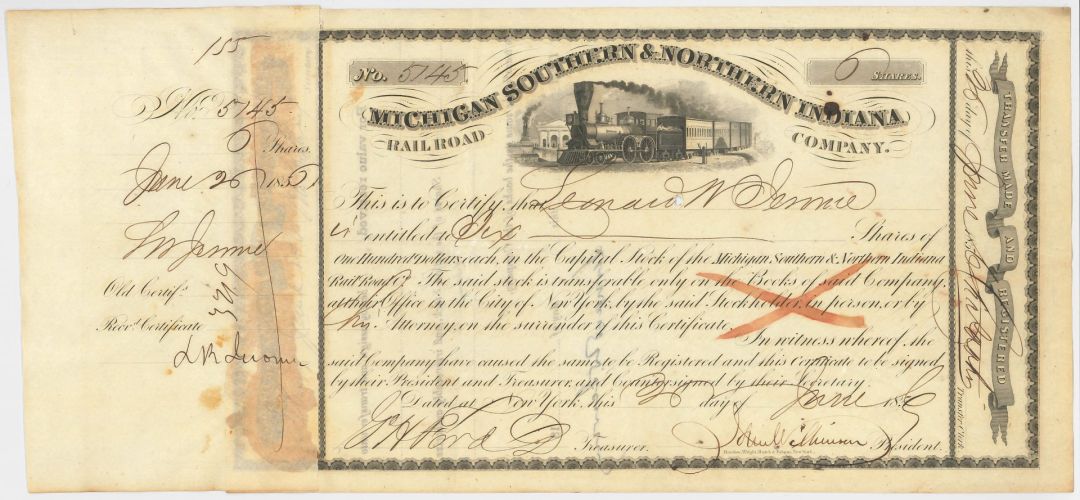 155
No. 5145
6 Shares.
June 26 1855
LW Jerome
Old Certif.
Recv. Certificate
No. 5145
6 SHARES.
MICHIGAN SOUTHERN & NORTHERN INDIANA
RAIL ROAD COMPANY.
This is to Certify, that Leonard W Jerome
is entitled to Six Shares of
One Hundred Dollars each, in the Capital Stock of the Michigan Southern & Northern Indiana
Rail Road Co. The said stock is transferable only on the Books of said Company,
at their Office in the City of New York, by the said Stockholder, in person, or by
his Attorney, on the surrender of this Certificate.
In witness whereof, the
said Company have caused the same to be Registered and this Certificate to be signed
by their President and Treasurer, and Countersigned by their Secretary.
Dated at New York, this 26 day of June 185
Treasurer.
John Wilkinson President.
TRANSFER MADE AND REGISTERED
this 26 day of June
Transfer Clerk